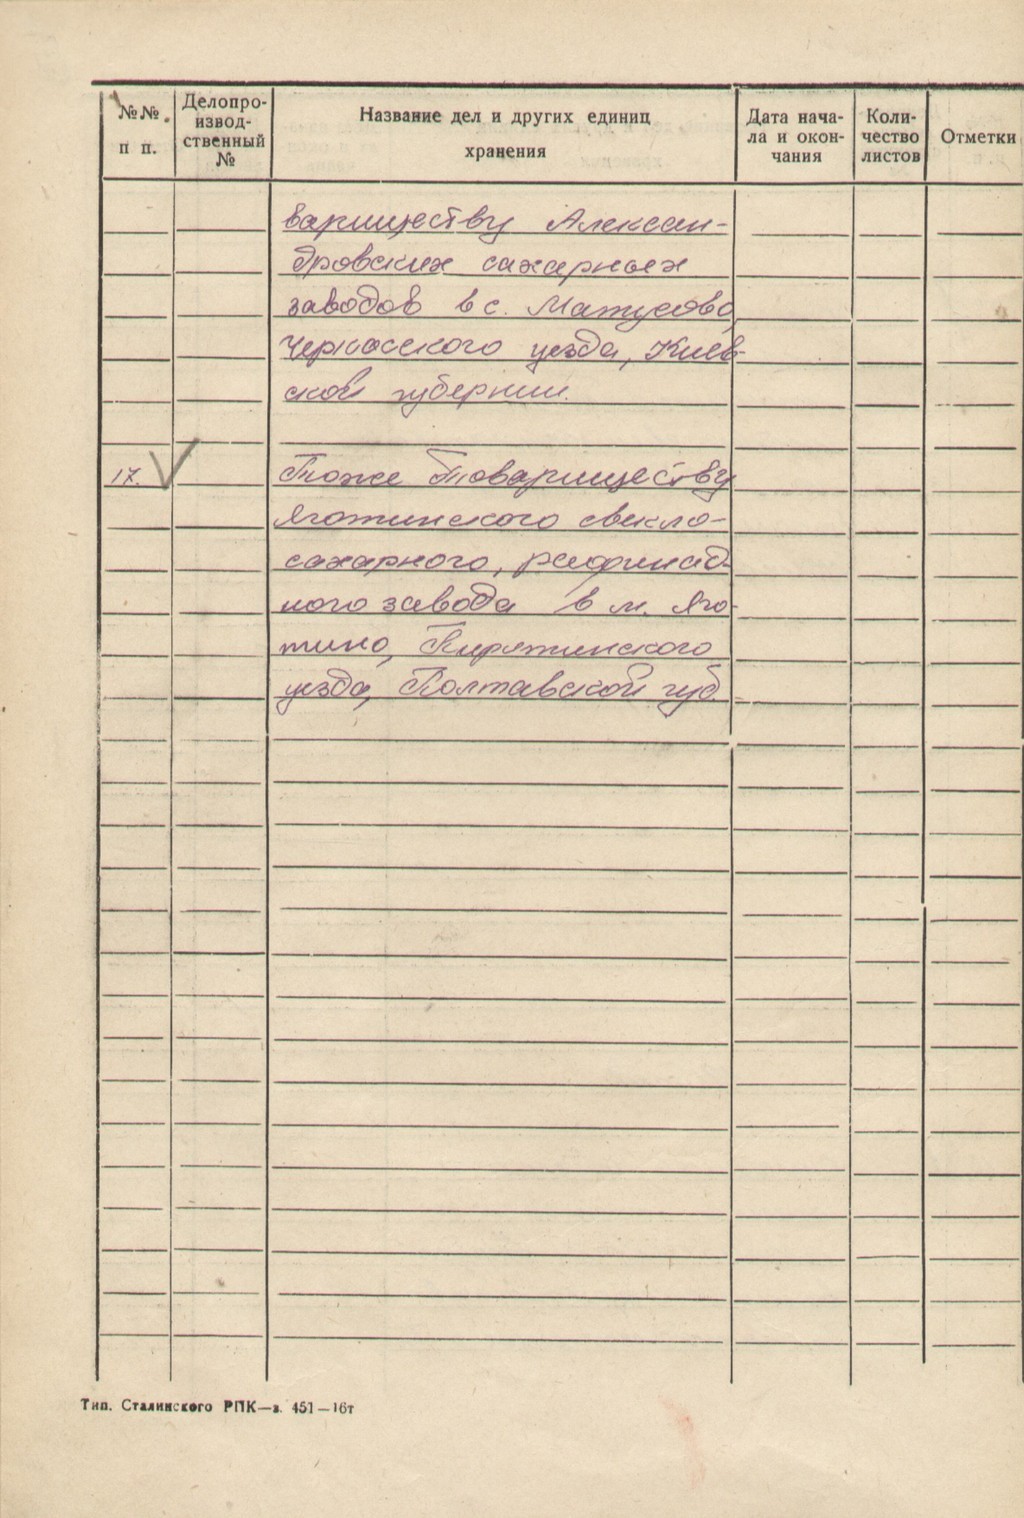 №№
п п.
Делопро-
извод-
ственный
№
Название дел и других единиц
хранения
Дата нача-
ла и окон-
чания
Коли-
чество
листов
Отметки
вариществу Алексан-
дровских сахарных
заводов в с. Матусово,
Черкасского уезда, Киев-
ской губернии.
17.
Тоже Товариществу
Яготинского свекло-
сахарного, рафинад-
ного завода в м. Яго-
тино, Пирятинского
уезда, Полтавской губ.
Тип. Сталинского РПК—з. 451—16т